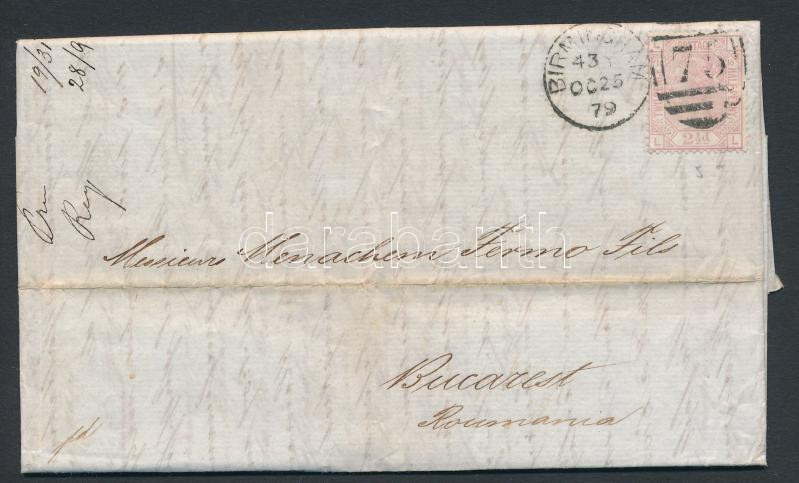 19/31
28/9
Rey
BIRMINGHAM
43
OC 25
79
75
POSTAGE
L
L
2½d
Messieurs Menachem Fermo Fils
darabanth
Bucarest
Roumania
pd